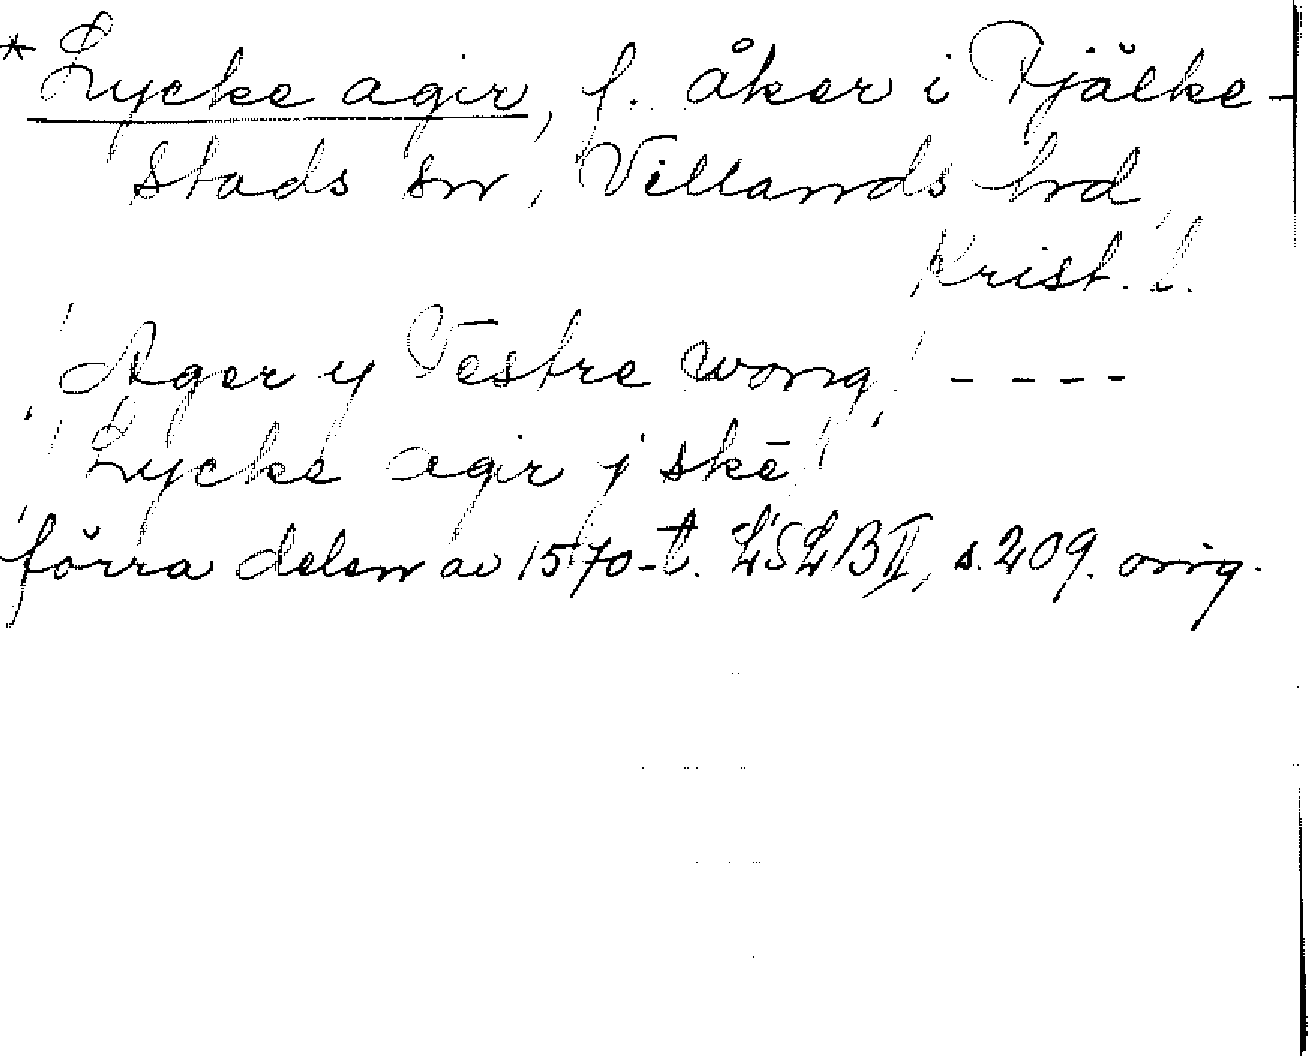 *Lycke agir, f. åker i Fjälke-
stads sn, Villands hrd,
Krist. l.
"Ager y Vestre wong" - - - -
"Lycke agir j skē"
förra delen av 1570-t. LSLB II, s. 209. orig.